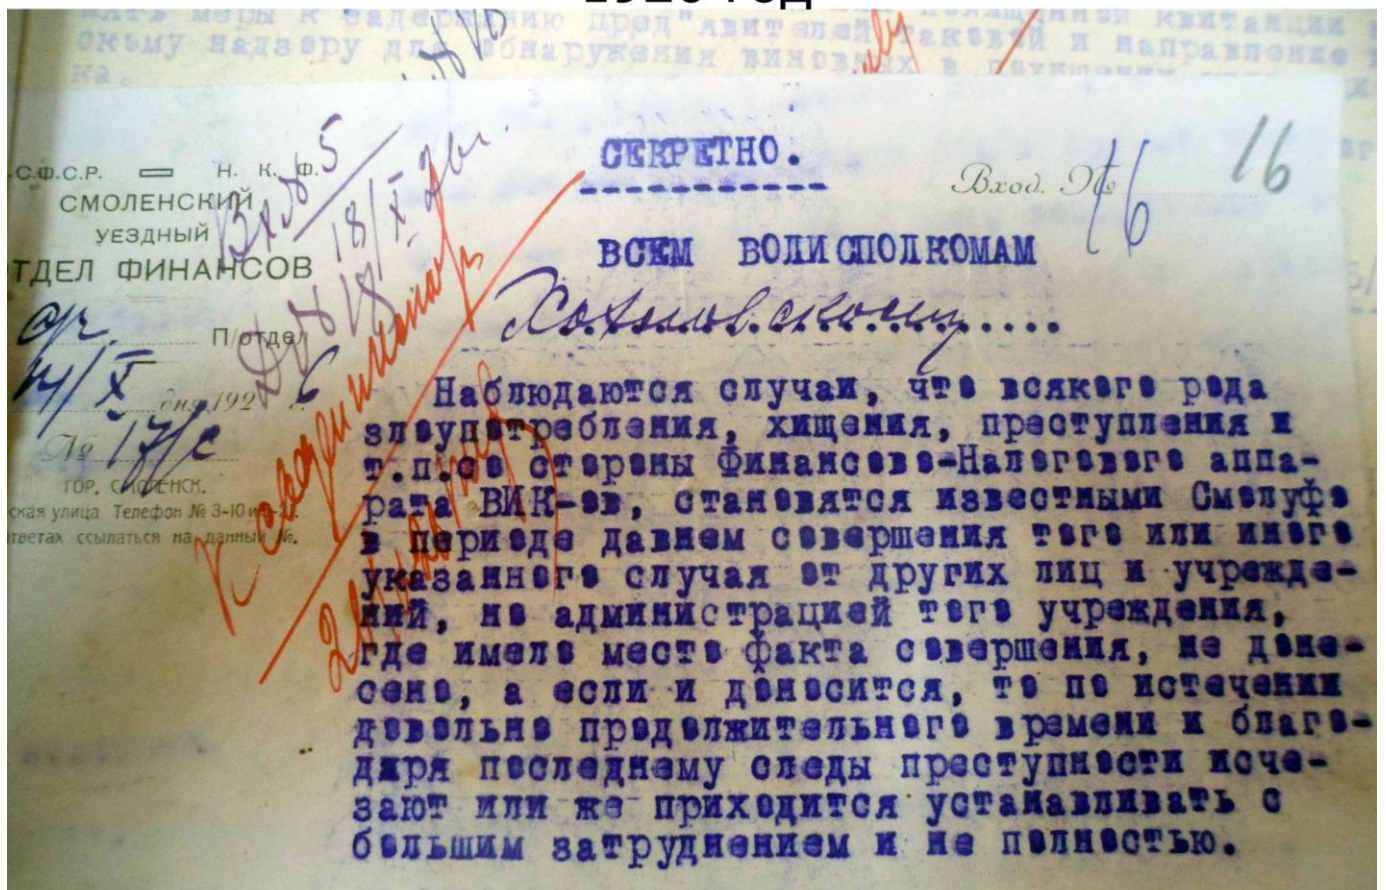 1926 год
нять меры к задержанию пред"явителей таковой и направление
скому надзору для обнаружения виновных в похищении
ка.
СЕКРЕТНО.
Вход. № 16
16
С.Ф.С.Р. — Н. К. Ф.
СМОЛЕНСКИЙ
УЕЗДНЫЙ
ТДЕЛ ФИНАНСОВ
П/отдел
дня 1926 г.
№ 17/с
ГОР. СМОЛЕНСК.
ская улица Телефон № 3-10 и
тветах ссылаться на данный №.
Вх №5
18/X 26г.
Д №18
ВСЕМ ВОЛИСПОЛКОМАМ
Хохловскому
Наблюдаются случаи, что всякого рода
злоупотребления, хищения, преступления и
т.п.со стороны Финансово-Налогового аппа-
рата ВИК-ов, становятся известными Смолуфо
в периоде давнем совершения того или иного
указанного случая от других лиц и учрежде-
ний, но администрацией того учреждения,
где имело место факта совершения, не доне-
сено, а если и доносится, то по истечении
довольно продолжительного времени и благо-
даря последнему следы преступности исче-
зают или же приходится устанавливать с
большим затруднением и не полностью.